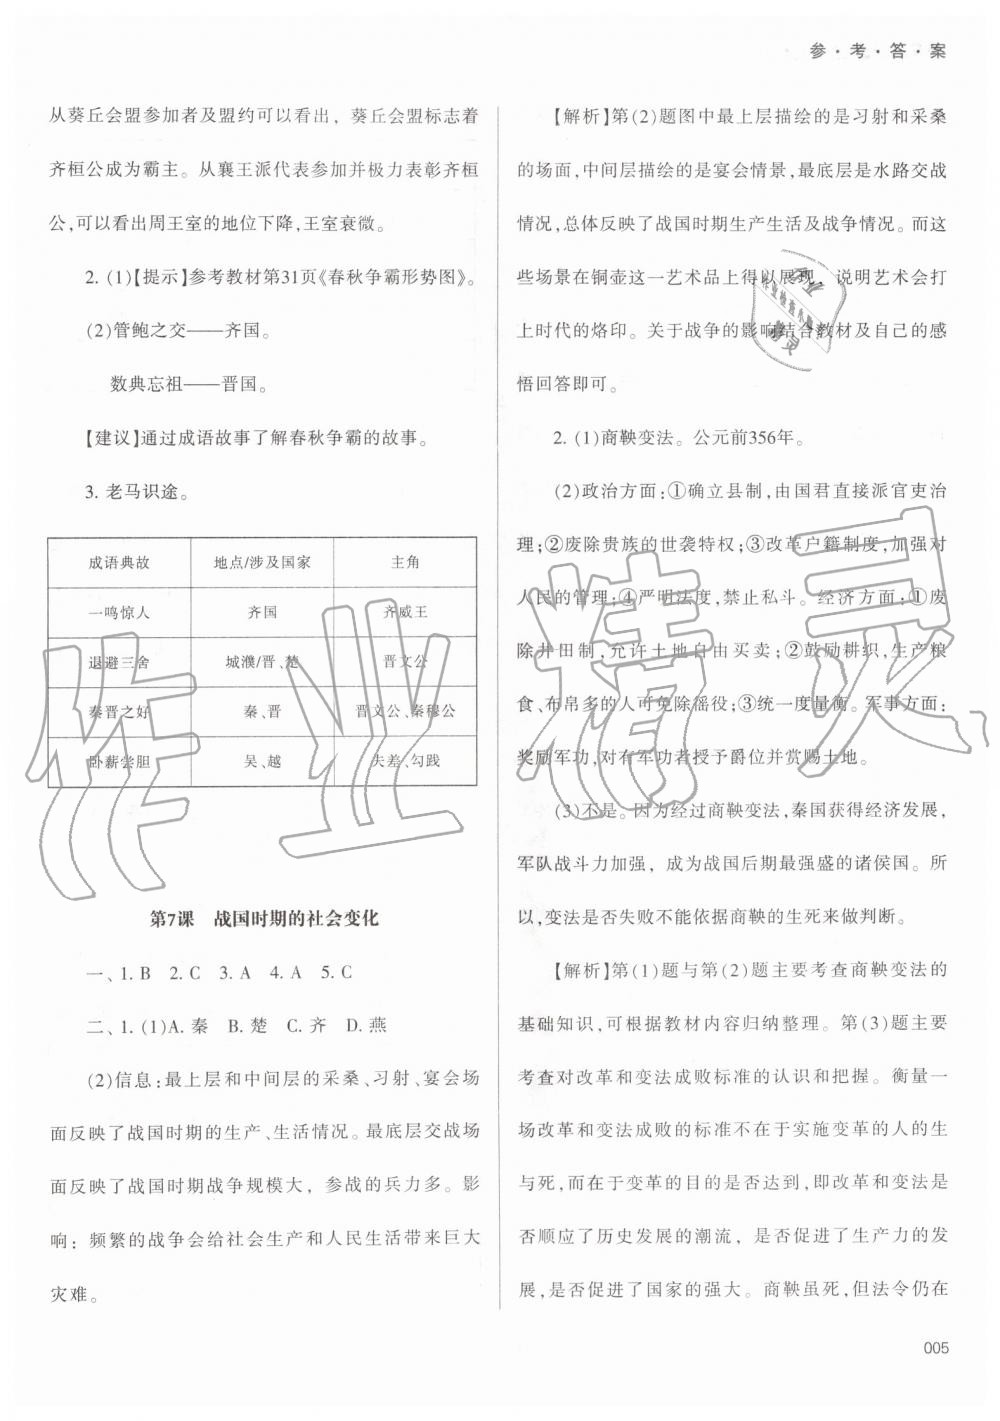 参·考·答·案
从葵丘会盟参加者及盟约可以看出，葵丘会盟标志着
齐桓公成为霸主。从襄王派代表参加并极力表彰齐桓
公,可以看出周王室的地位下降,王室衰微。
2. (1)【提示】参考教材第31页《春秋争霸形势图》。
(2)管鲍之交——齐国。
数典忘祖——晋国。
【建议】通过成语故事了解春秋争霸的故事。
3. 老马识途。
成语典故 地点/涉及国家 主角
一鸣惊人 齐国 齐威王
退避三舍 城濮/晋、楚 晋文公
秦晋之好 秦、晋 晋文公、秦穆公
卧薪尝胆 吴、越 夫差、勾践
第7课 战国时期的社会变化
一、1. B 2. C 3. A 4. A 5. C
二、1. (1)A. 秦 B. 楚 C. 齐 D. 燕
(2)信息:最上层和中间层的采桑、习射、宴会场
面反映了战国时期的生产、生活情况。最底层交战场
面反映了战国时期战争规模大，参战的兵力多。影
响：频繁的战争会给社会生产和人民生活带来巨大
灾难。
【解析】第(2)题图中最上层描绘的是习射和采桑
的场面,中间层描绘的是宴会情景,最底层是水路交战
情况,总体反映了战国时期生产生活及战争情况。而这
些场景在铜壶这一艺术品上得以展现，说明艺术会打
上时代的烙印。关于战争的影响结合教材及自己的感
悟回答即可。
2. (1)商鞅变法。公元前356年。
(2)政治方面:①确立县制,由国君直接派官吏治
理;②废除贵族的世袭特权;③改革户籍制度,加强对
人民的管理;④严明法度,禁止私斗。经济方面:①废
除井田制,允许土地自由买卖;②鼓励耕织,生产粮
食、布帛多的人可免除徭役;③统一度量衡。军事方面:
奖励军功,对有军功者授予爵位并赏赐土地。
(3)不是。因为经过商鞅变法,秦国获得经济发展,
军队战斗力加强，成为战国后期最强盛的诸侯国。所
以,变法是否失败不能依据商鞅的生死来做判断。
【解析】第(1)题与第(2)题主要考查商鞅变法的
基础知识,可根据教材内容归纳整理。第(3)题主要
考查对改革和变法成败标准的认识和把握。衡量一
场改革和变法成败的标准不在于实施变革的人的生
与死,而在于变革的目的是否达到,即改革和变法是
否顺应了历史发展的潮流，是否促进了生产力的发
展,是否促进了国家的强大。商鞅虽死,但法令仍在
005
作业精灵